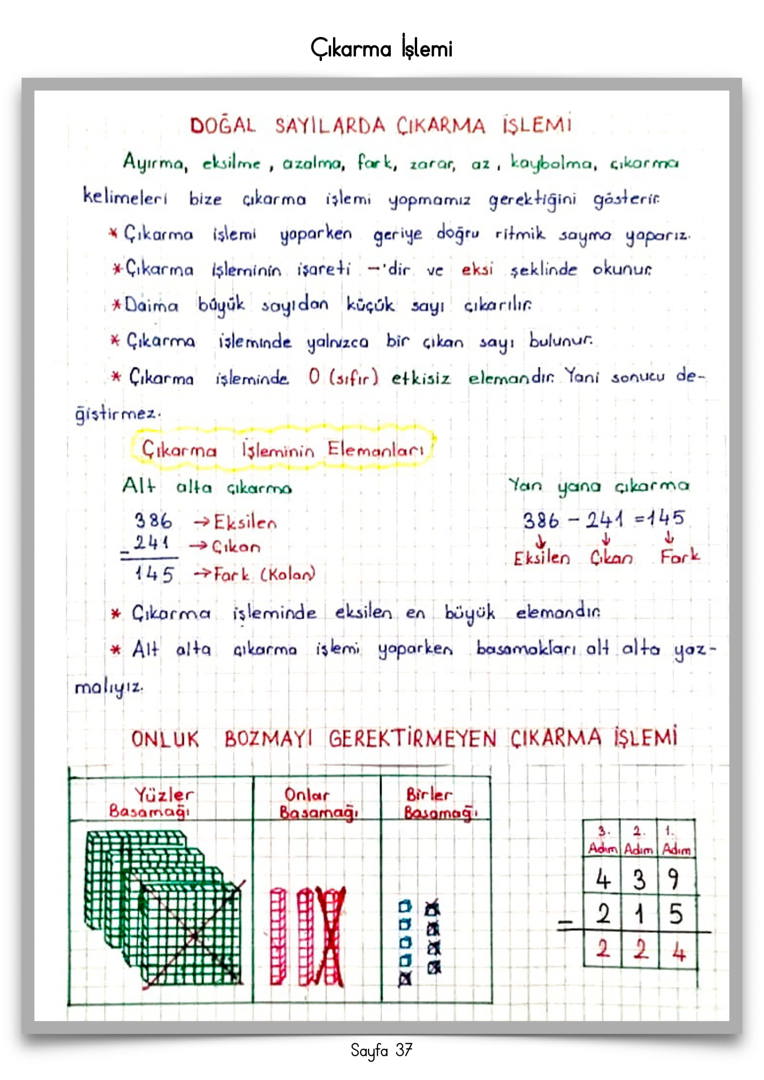 Çıkarma İşlemi
DOĞAL SAYILARDA ÇIKARMA İŞLEMİ
Ayırma, eksilme, azalma, fark, zarar, az, kaybolma, çıkarma
kelimeleri bize çıkarma işlemi yapmamız gerektiğini gösterir.
* Çıkarma işlemi yaparken geriye doğru ritmik sayma yaparız.
* Çıkarma işleminin işareti –'dir ve eksi şeklinde okunur.
* Daima büyük sayıdan küçük sayı çıkarılır.
* Çıkarma işleminde yalnızca bir çıkan sayı bulunur.
* Çıkarma işleminde 0 (sıfır) etkisiz elemandır. Yani sonucu de-
ğiştirmez.
Çıkarma İşleminin Elemanları
Alt alta çıkarma
386 → Eksilen
- 241 → Çıkan
145 → Fark (Kalan)
Yan yana çıkarma
386 – 241 = 145
↓ ↓ ↓
Eksilen Çıkan Fark
* Çıkarma işleminde eksilen en büyük elemandır.
* Alt alta çıkarma işlemi yaparken basamakları alt alta yaz-
malıyız.
ONLUK BOZMAYI GEREKTİRMEYEN ÇIKARMA İŞLEMİ
Yüzler Basamağı
Onlar Basamağı
Birler Basamağı
3. 2. 1.
Adım Adım Adım
4 3 9
- 2 1 5
2 2 4
Sayfa 37